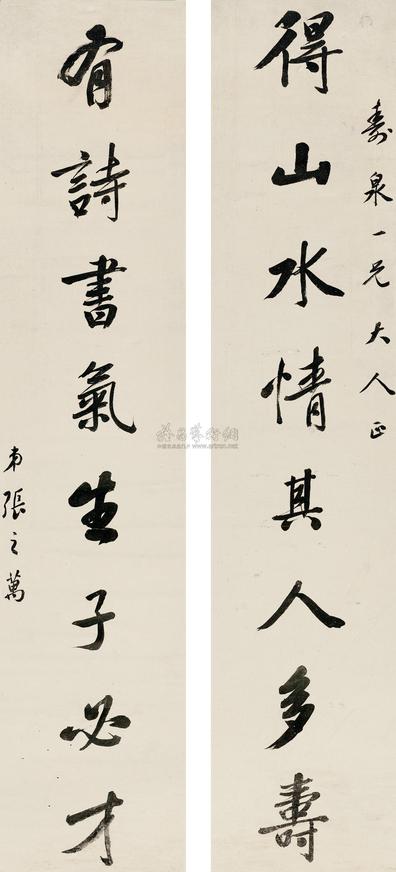 壽泉一兄大人正
得山水情其人多壽
有詩書氣生子必才
弟張之萬